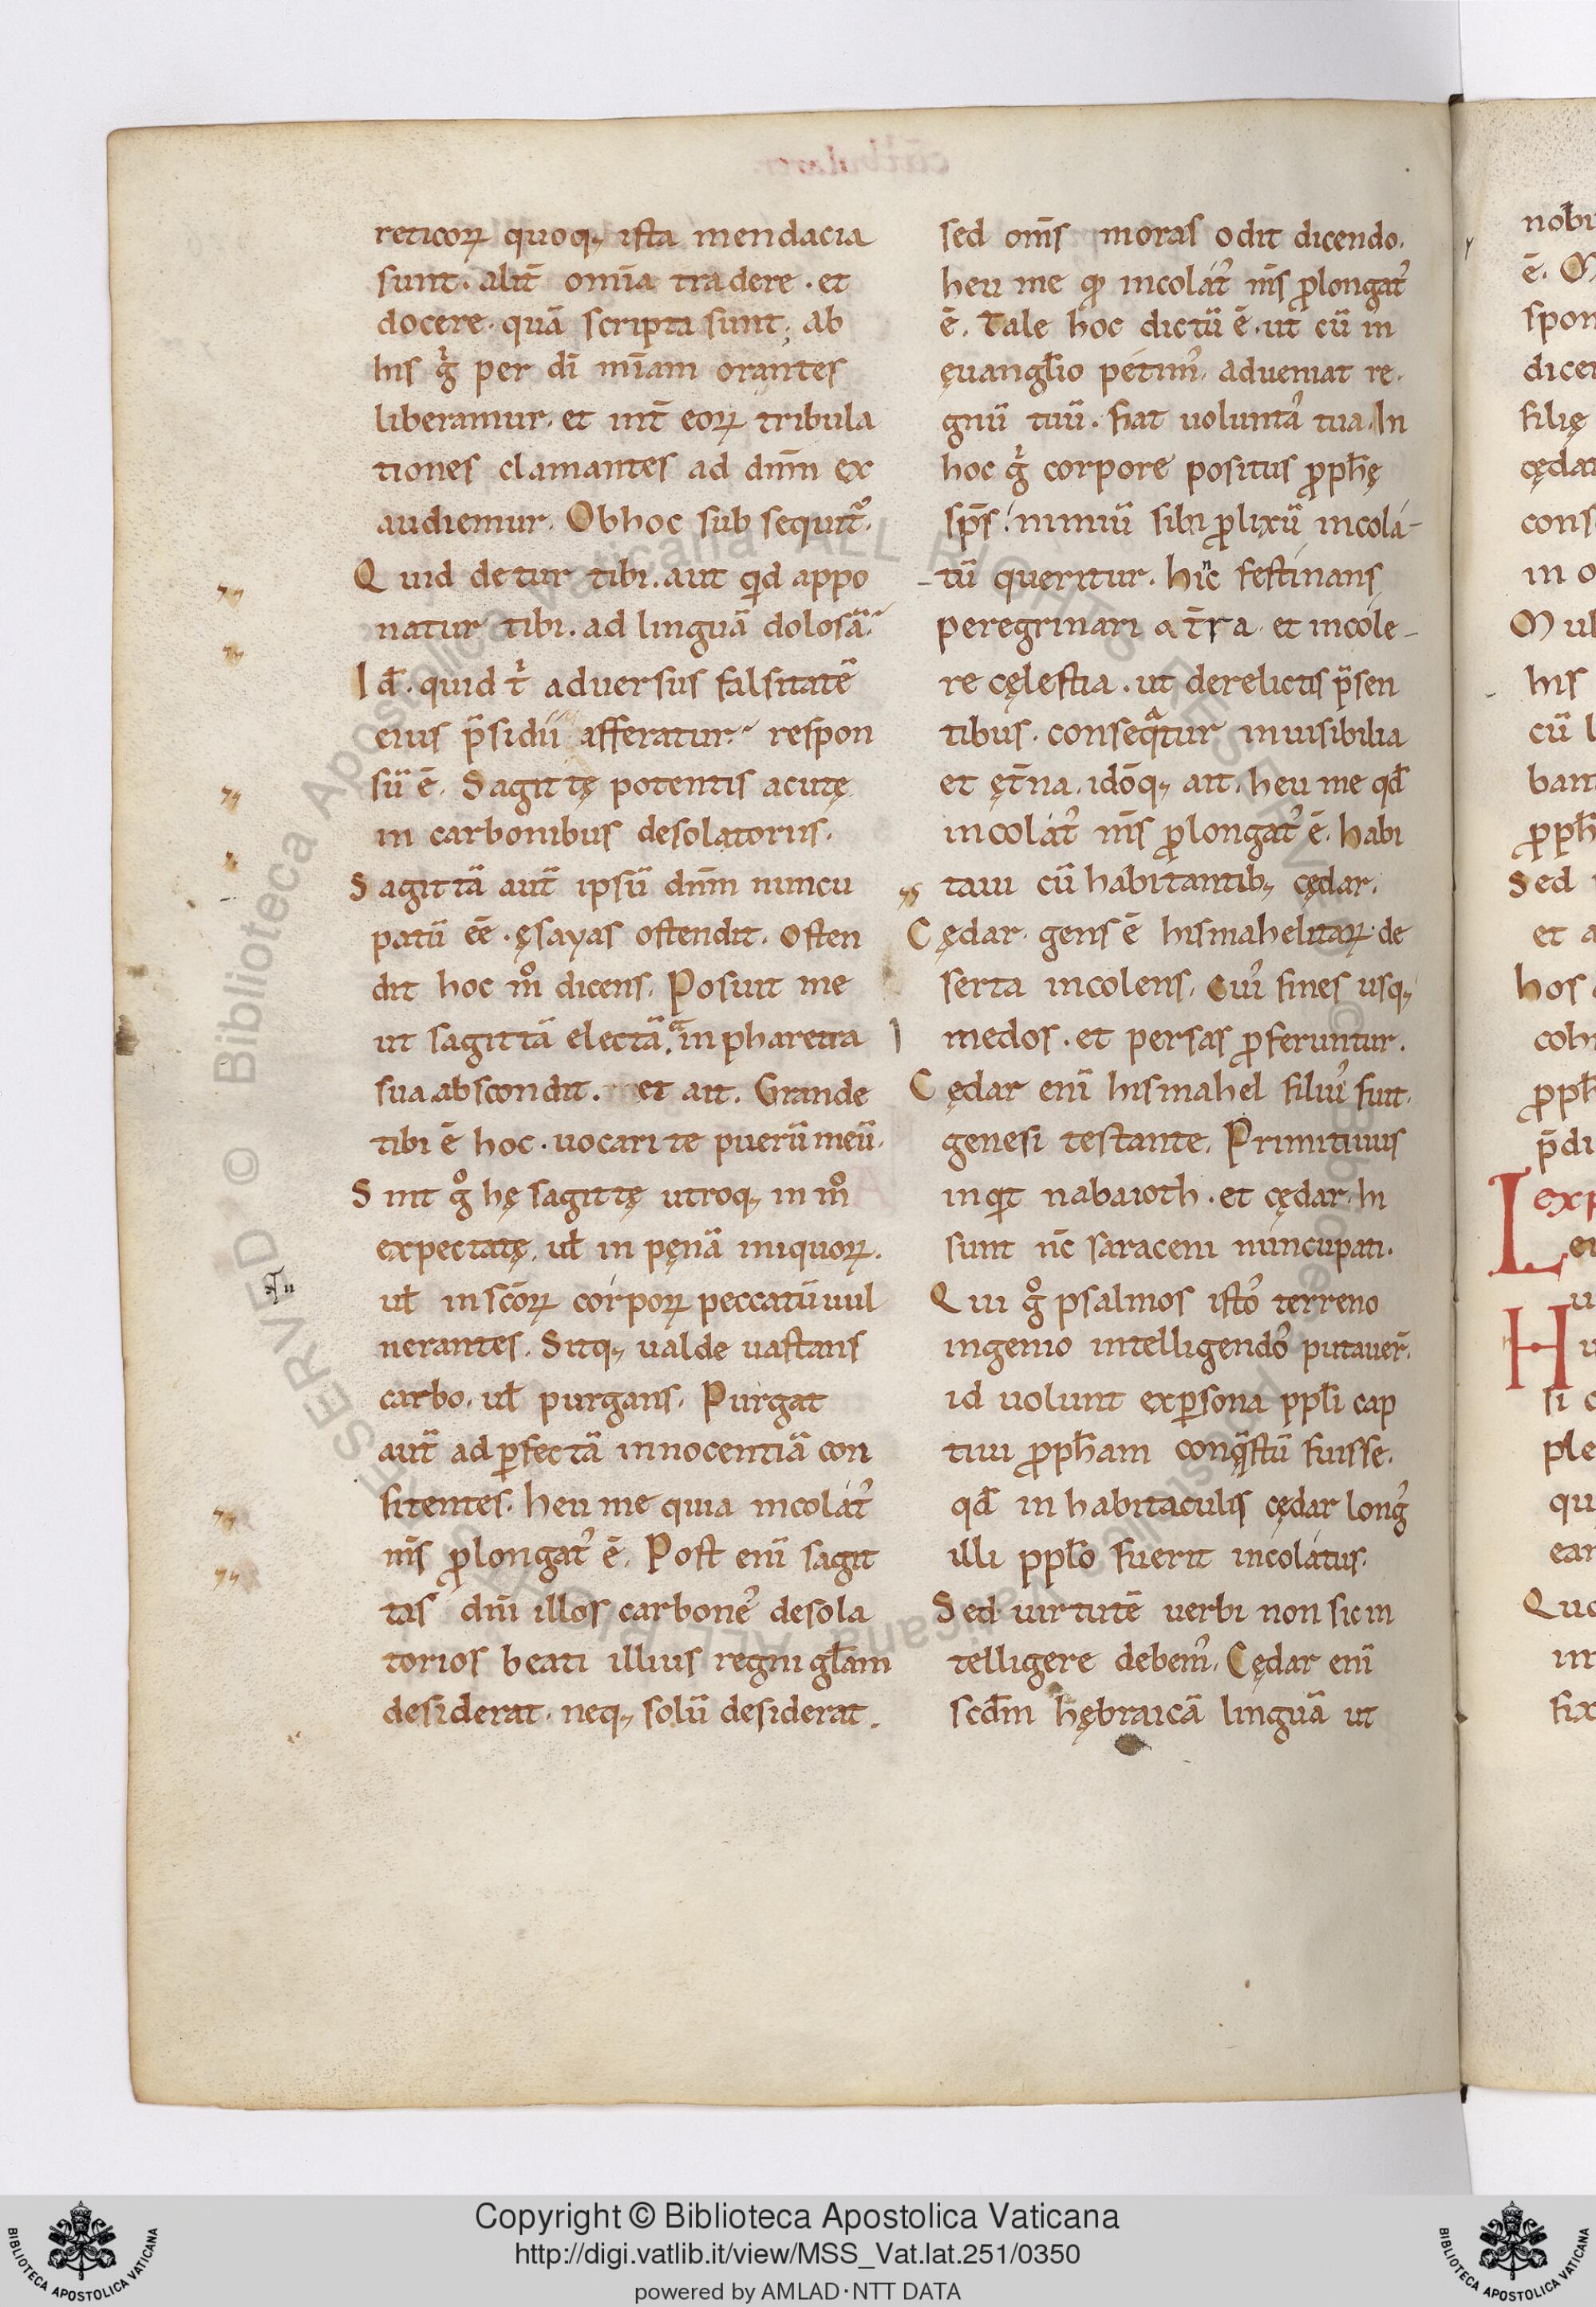 reticoꝝ quoq; ista mendacia
sunt. alit̄ om̄ia tradere. et
docere. quā scripta sunt; ab
his gͥ per dī mīam orantes
liberamur. et int̄ eoꝝ tribula
tiones clamantes ad dn̄m ex
audiemur. Ob hoc subsequit᷑.
Quid detur tibi. aut qͥd appo
natur tibi. ad linguā dolosā.
Id̄. quid tͥ aduersus falsitatē
eius p̄sidii afferatur. respon
sū ē. Sagittę potentis acutę
in carbonibus desolatoriis.
Sagittā aut̄ ipsū dn̄m nuncu
patū ēē. ęsayas ostendit. Osten
dit hoc mͦ dicens. Posuit me
ut sagittā electā. in pharetra
sua abscondit. et ait. Grande
tibi ē hoc. uocari te puerū meū.
Sint gͦ hę sagittę utroq; in mͦ
expectatę. ul̄ in pęnā iniquoꝝ.
ul̄ in sc̄oꝝ corpoꝝ peccatū uul
nerantes. Sitq; ualde uastans
carbo. ul̄ purgans. Purgat
aut̄ ad ꝑfectā innocentiā con
fitentes. heu me quia incolat᾽
m̄s ꝓlongat᾽ ē. Post enī sagit
tas dn̄i illos carbone᾽ desola
torios beati illius regni gl̄am
desiderat. neq; solū desiderat.
sed om̄s moras odit dicendo.
heu me qͥ incolat᾽ m̄s ꝓlongat᾽
ē. Tale hoc dictū ē. ut cū in
ęuangl̄io petim᾽. adueniat re-
gnū tuū. fiat uolunta᾽ tua. In
hoc gͥ corpore positus ꝓph̄ę
sp̄s. nimiū sibi ꝓlixū incola-
tū queritur. hinc festinans
peregrinari a t̄ra. et incole-
re cęlestia. ut derelictis p̄sen
tibus. conseqᷓtur inuisibilia
et ęt̄na. idōq; ait. heu me qd̄
incolat᾽ m̄s ꝓlongat᾽ ē. habi
taui cū habitantib; cędar.
Cędar. gens ē hismahelitaꝝ. de
serta incolens. cui᾽ fines usq;
medos. et persas ꝓferuntur.
Cędar enī hismahel filiu᾽ fuit.
genesi testante. Primitiuus
inqͥt nabaioth. et cędar. hi
sunt nc̄ saraceni nuncupati.
Qui gͦ psalmos isto᾽ terreno
ingenio intelligendo᾽ putauer̄.
id uolunt ex ꝑsona ppl̄i cap
tiui ꝓph̄am conqᷓstū fuisse.
qd̄ in habitaculis cędar long᾽
illi ppl̄o fuerit incolatus.
Sed uirtutē uerbi non sic in
telligere debem᾽. Cędar enī
scd̄m hębraicā linguā ut
nobi
ē.
spon
dicen
filię
cędar
cons
in o
his
cū l
ban
ꝓph̄
Sed
et a
hos
coh
ꝓph̄
p̄di
Lexp
H
ple
qu
ear
Quo
fix
Copyright © Biblioteca Apostolica Vaticana
http://digi.vatlib.it/view/MSS_Vat.lat.251/0350
powered by AMLAD·NTT DATA
BIBLIOTECA APOSTOLICA VATICANA
BIBLIOTECA APOSTOLICA VATICANA